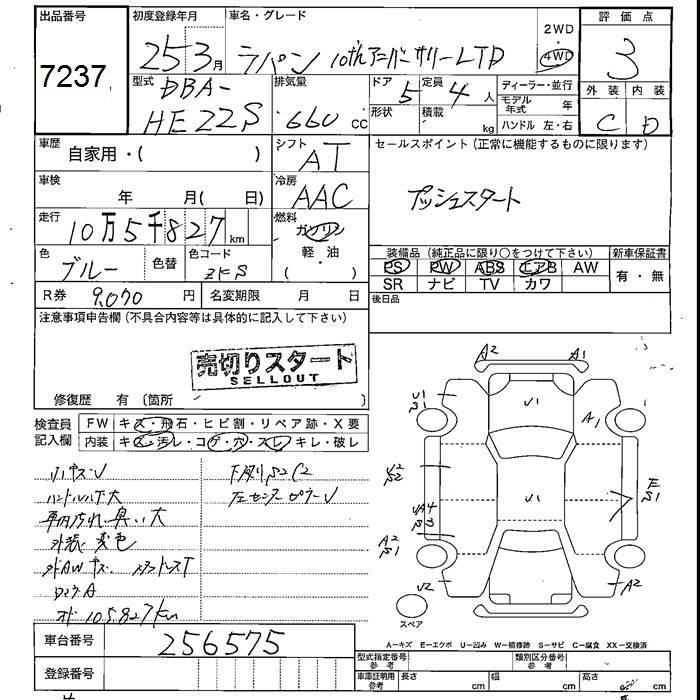 出品番号
7237
初度登録年月
25 3月
車名・グレード
ラパン 10thアニバーサリーLTD
2WD
4WD
評価点
3
外装 内装
C D
型式
DBA-
HE22S
排気量
660 cc
ドア 5
形状
定員 4人
積載 kg
ディーラー・並行
モデル年式 年
ハンドル 左・右
車歴
自家用・( )
シフト
AT
セールスポイント(正常に機能するものに限ります)
プッシュスタート
車検
年 月( 日)
冷房
AAC
走行
10万5千827 km
燃料
ガソリン
軽・油
( )
色
ブルー
色替
色コード
ZKS
装備品(純正品に限り○をつけて下さい)
PS PW ABS エアB AW
SR ナビ TV カワ
新車保証書
有・無
R券 9,070 円
名変期限 月 日
後日品
注意事項申告欄(不具合内容等は具体的に記入して下さい)
売切りスタート
SELLOUT
修復歴 有(箇所 )
検査員記入欄
FW キズ・飛石・ヒビ割・リペア跡・X要
内装 キズ・汚レ・コゲ・穴・スレ・キレ・破レ
ハンドルハゲ大
車内汚れ・臭い大
外装変色
外AWキズ
下廻りS2C2
左センターピラーU
メーター 105.827km
A2 A1
U1
S1
U1
A1
U2
S2
U1
E
S1
A2
S1
U2
A2
スペア
A−キズ E−エクボ U−凹み W−補修跡 S−サビ C−腐食 XX−交換済
車台番号
256575
登録番号
型式指定番号
参考
類別区分番号
参考
車庫証明用
参考
長さ cm
幅 cm
高さ cm